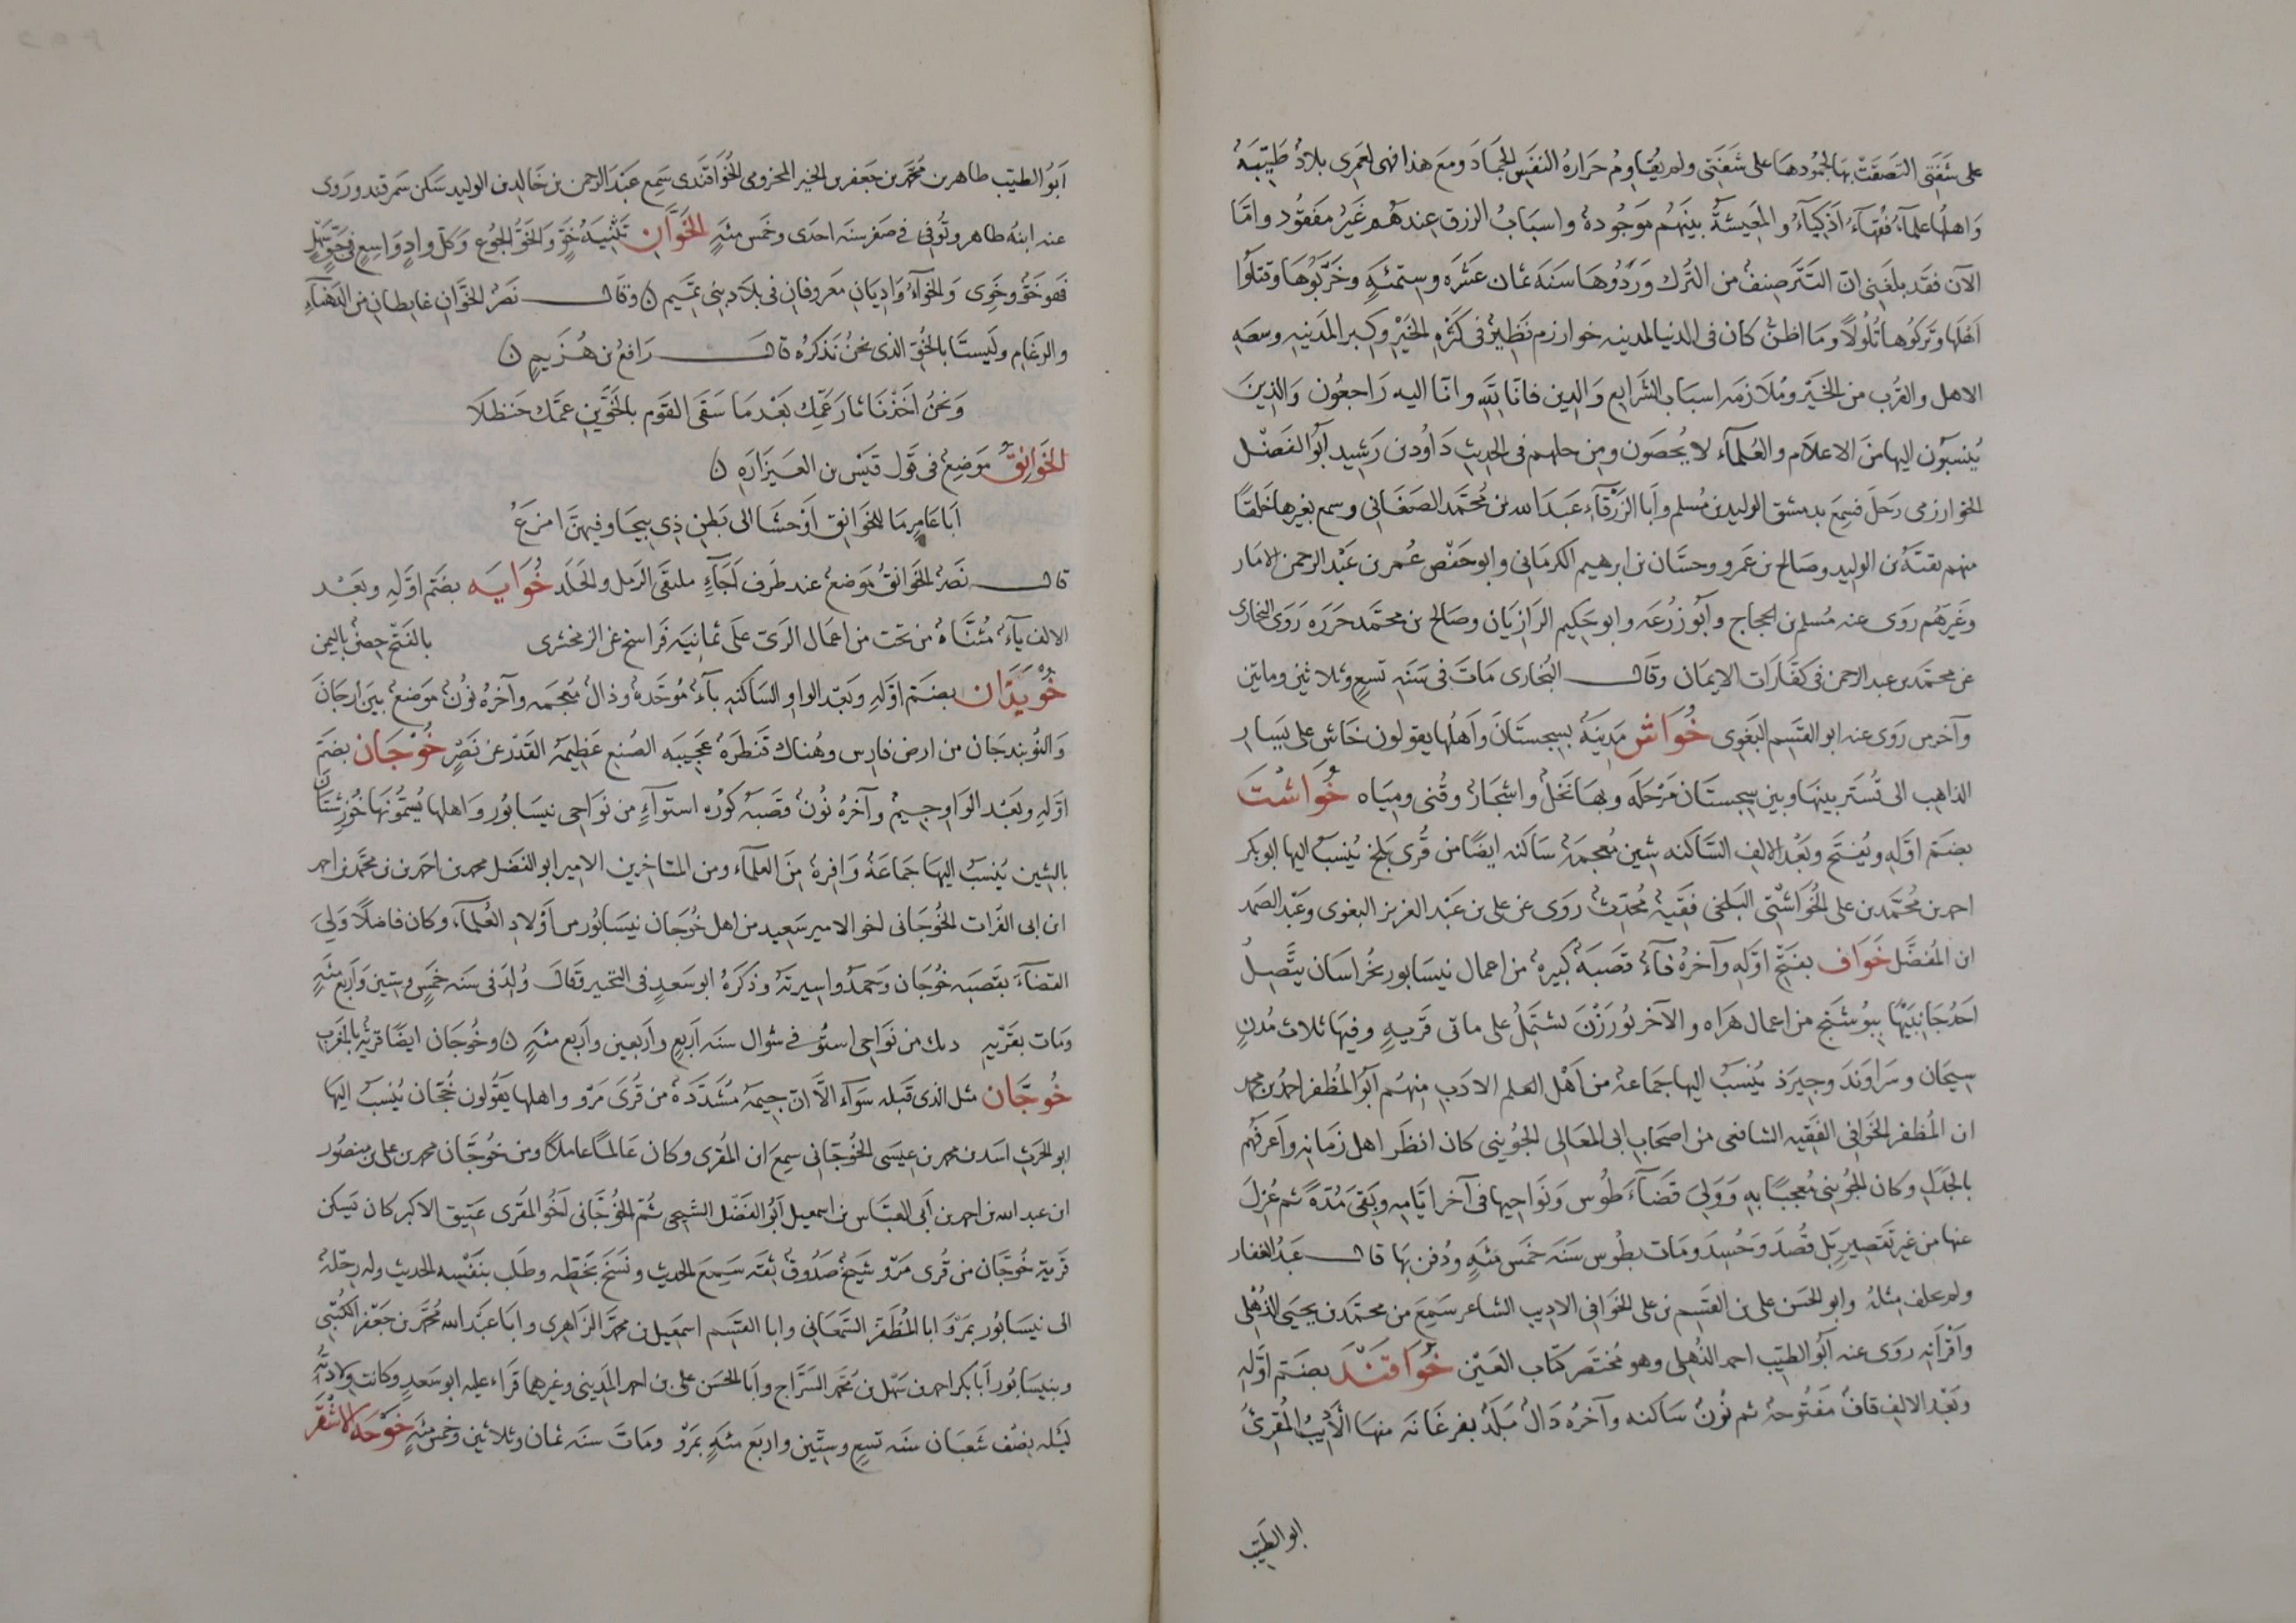 على شَفَتي التصَقَتْ بها لجمُودها على شفَتي ولم يُقاوِمُ حَرَارهُ النفَس الجمَادَ ومعَ هذا فهى لعَمرى بلادٌ طَيّبَهٌ
وَاهلُها علمآءُ فُقهآءُ اَذكيَآءُ والمَعيشَةُ بينَهُم مَوجُودهٌ واسبَابُ الرزق عندَهُم غَيرُ مَفقُود وامَّا
الآن فقَد بلَغَنى انّ التَتَر صِنفٌ من التُرك وَرَدُوهَا سَنَهَ ثمان عَشَره وستمئَهٍ وخَرَّبُوهَا وقتلُوا
اَهلَها وتَركُوها تُلُولاً ومَا اظنُّ كان فى الدنيا لمدينه خوارزم نَظِيرٌ فى كثرَه الخَيْر وكِبر المَدينه وسعَه
الاهل والقُرب من الخَيْر ومُلاَزمَه اسبَاب الشَرايع وَالدين فانّا للهِ وانّا اليه رَاجعُون وَالذينَ
يُنسَبُون اليها منَ الاعلاَم والعُلمآء لا يُحصَون ومن حلهم فى الحديث دَاوُد بن رَشِيد اَبُو الفَضْل
الخوارزمى رَحَلَ فسِمعَ بدمشق الوليد بن مُسلم وأبَا الزَرْقآءِ عَبدَ الله بن مُحَمَّد الصَغَانى وسمع بغيرها خَلقًا
منهم بقيَّه بن الوليد وصَالح بن عَمرو وحسَّان بن ابرهيم الكرمَانى وابو حَفْص عُمر بن عَبْد الرحمن الابَّار
وغَيرهُم رَوَى عنه مُسلم بن الحجاج وأبُو زُرْعَه وابو حَكِيم الرَازيَان وصَالح بن محمَّد جَزَرَه رَوَى البخارى
عن محمَّد بن عبد الرحمن فى كفَّارَات الايمَان وقَالـــ البُخارى مَاتَ فى سَنَه تسعٍ وثلاثينَ وماتين
وآخر من رَوَى عنه ابو القَسم البَغَوى خُوَاش مَدِينَهٌ بسِجستَانَ وأهلُها يقولون خَاش على يَسَار
الذاهب الى تُستَر بينهَا وبين سِجستَان مَرْحَلَه وبهَا نَخلٌ واشجَارٌ وقُنى ومِيَاه خُوَاشْتَ
بضَم اوَّلهِ ويُفتَح وبَعْد الالِف السَّاكنه شِين مُعجمَهٌ سَاكنه ايضًا من قُرى بَلخ يُنسَبُ اليها ابو بكر
احمد بن مُحَمَّد بن على الخُوَاشْتِى البَلخى فَقيهٌ مُحدّثٌ رَوى عن على بن عَبْد العزيز البغوى وعَبْد الصَمد
ابن المُفضَّل خَوَاف بفَتْح اوَّلِه وآخرُهُ فآءٌ قصَبَهٌ كبيرهٌ من اعمال نيسَابور بخُراسَان يتَّصِلُ
اَحَدُ جَانبَيْها ببُوشَنج من اعمال هَرَاه والآخر بزُوزَنَ لشتمِلُ على ماتى قَريهٍ وفيهَا ثلاث مُدنٍ
سِيجَان وسَرَاوَندَ وجيرَذ يُنسَبُ اليها جَمَاعهٌ من اَهْل العلم الادَب منِهُم اَبُو المُظفر احمدُ بن محمد
ابن المُظفر الخَوَافى الفَقيه الشافعى من اصحَابِ ابى المعَالى الجُوَينى كان انظَر اهل زمَانِه وأعرَفهُم
بالجَدَل وكان الجُوَينى مُعجبًا بهِ وَوَلىَ قضآءَ طُوس ونَوَاحيها فى آخر ايَّامهِ وبَقىَ مُدّةً ثم عُزِلَ
عنها من غير تَقصِيرٍ بَل قُصدَ وَحُسِدَ ومَات بطُوس سَنَه خَمس مئَهٍ ودُفن بهَا قالـــ عَبدُ الغفار
ولم يخلف مِثلَهُ وابو الحَسَن على بن القَسِم بن على الخَوَافى الاديب الشاعر سَمِعَ من محمَّد بن يحيَى الذُهْلى
وَأقرَانِه رَوى عنه اَبُو الطيّب احمد الذُهلى وهو مُختصَر كتَاب العَيْن خُوَاقَنْدَ بضَم اوَّلِه
وبَعْد الالِف قافٌ مَفتُوحَهٌ ثم نُونٌ سَاكنه وآخرُه دَالٌ بَلَدٌ بفرغَانَه منهَا الأديبُ المُقرئُ
ابو الطيّب
اَبُو الطيّب طاهر بن مُحَمَّد بن جَعفر بن الخير المخزومى الخُوَاقَندى سَمِع عَبْد الرحمن بن خَالِد بن الوليد سَكن سَمرقند ورَوى
عنه ابنُهُ طاهر وتُوفى فى صَفر سنَه احدَى وخَمس مئَهٍ الخَوَّانِ تَثْنِيَهُ خَوٍّ والخَوُّ الجُوع وكلّ وادٍ وَاسِعٍ فى جَوٍّ سَهلٍ
فهو خَوٌّ وخَوِى وَالخوَّآءُ وَادِيَانِ مَعرُوفانِ فى بلاَد بنى تمَيم ن وقالـــ نَصْرٌ الخَوَّانِ غائطانِ من الدَهنآءِ
والرَغَام ولَيستَا بالخَوّ الذى نحنُ نَذكُرُهُ قالـــ رَافعُ بن هُزَيم ن
وَنحنُ اخَذْنَا ثارَ عَمّك بَعْد مَا سَقَى القَوم بالخَوَّين عمَّك حَنظلا
الخَوَانِقُ مَوضِعٌ فى قَول قيس بن العَيزَارَهِ ن
اَبَا عَامِرٍ مَا للخَوَانِق اَوْحَشَا الى بَطنِ ذِى ييجَا وفيهنَّ امرعُ
قالـــ نَصرٌ الخَوَانقُ موَضعٌ عند طَرف اَجَآءٍ ملتقَى الرَمل والجَلَد خُوَايَه بضَم اوَّلهِ وبَعْد
الالف يآءٌ مُثنَّاهٌ من تحت من اعمال الرَى علَى ثمانِيَه فَرَاسخ عن الزمخشرى بالفَتْح حِصنٌ باليمن
خُوْبَذان بضَم اوَّلهِ وبَعْد الواو السَاكنه بآءٌ مُوحَّدهٌ وذالٌ مُعجَمه وآخرُه نُونٌ مَوضعٌ بين ارجَانَ
وَالنُوبندجَان من ارض فارِس وهُناك قنطَرَهٌ عَجيبَه الصُنع عَظِيمَهُ القَدْر عن نَصْرٍ خُوْجَان بضَم
اوَّلهِ وبَعْد الوَاو جيمٌ وآخرُهُ نُونٌ قصَبهُ كوُره استوآءٍ من نوَاحى نيسَابُور وَاهلها يُسَمُّونَهَا خُوزشَان
بالشِين يُنسَبُ اليها جَمَاعَهٌ وَافِرهٌ مِنَ العلمآء ومن المتَاخرين الامير ابو الفَضل محمد بن احمد بن محمَّد بن احمد
ابن ابى الفُرات الخُوجَانى اخو الامير سَعِيد من اهل خُوجَان نيسَابُور من أَوْلادِ العُلمآء وكان فاضلاً وَلِىَ
القضآءَ بقصَبه خُوجَان وحَمدُوا سِيرتَهُ وذَكَرَهُ ابو سَعدٍ فى التحبير وقَالَ وُلِدَ فى سَنه خَمسٍ وستين وَاَربع مئَهٍ
ومَات بقَريَهِ دىك من نَوَاحى استُوَا فى شوال سنه اَربَعٍ وأربَعين وأربَع مئَهٍ ن وخُوجَان ايضًا قريهٌ بالمغَرِب
خُوجَّان مثل الذى قَبلَه سَوآء الاَّ انّ جيمَهُ مُشَدَّدَهٌ من قُرى مَرْو واهلها يَقُولون خُجَّان يُنسَبُ اليها
ابو الحَرث اسَد بن محمد بن عيسَى الخُوجَّانى سمِعَ ابن المُقرى وكان عَالمًا عاملاً ومن خُوجَّان محمد بن على بن منصُور
ابن عبد الله بن احمد بن أبى العبَّاس بن اسمعيل اَبُو الفَضْل السِنجى ثُمّ الخُوجَّانى اَخُو المُقرى عَتِيق الاكبر كان يَسكنُ
قَريَه خُوجَّان من قُرى مَرْو شَيخٌ صَدُوقٌ ثِقَه سَمِعَ الحديث ونَسَخَ بخَطّه وطَلَب بنَفْسِه الحديث وله رِحْلَهٌ
الى نيسَابُور بمَروَ ابا المُظَفّر السَّمعَانى وابا القسَم اسمَعيل بن محمَّد الزَاهِرى وابَا عَبْد الله مُحمَّد بن جَعْفر الكُتُبى
وبنيسَابُور أبَا بكر احمد بن سَهْل بن مُحمَّد السَرَّاج وأبَا الحَسَن على بن احمد المدينى وغيرهما قراء عليه ابو سَعدٍ وكانت ولادَتُه
لَيْلَه نِصْف شَعبَان سَنه تسعٍ وستّين واربَع مئهٍ بمَرْوَ ومَاتَ سنَه ثمان وثلاثين وخَمس مئَهٍ خَوْجَهُ الأشْقَر